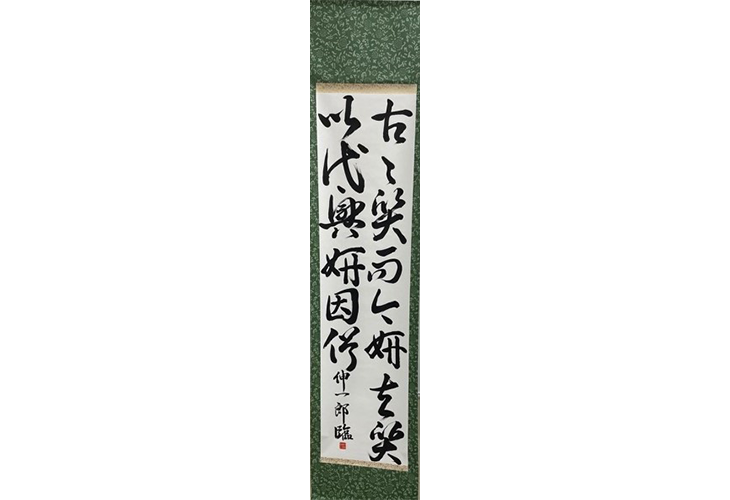 古〻質而今妍夫質
以代興妍因俗
伸一郎臨